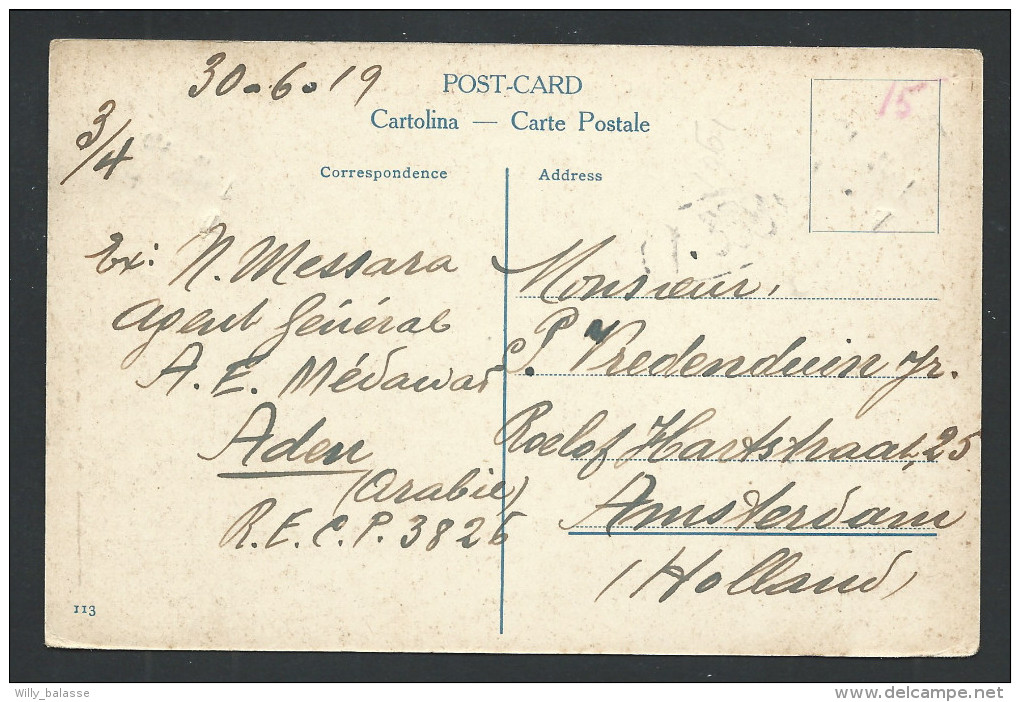 30-6-19
3/4
POST-CARD
Cartolina — Carte Postale
15
Correspondence
Address
Ex: N. Messara
Agent Général
A. E. Médawar
Aden
(Arabie)
R.E.C.P. 3826
Monsieur,
P. Vredenduin Jr.
Roelof Hartstraat, 25
Amsterdam
(Holland)
113
Willy_balasse
delcampe.net